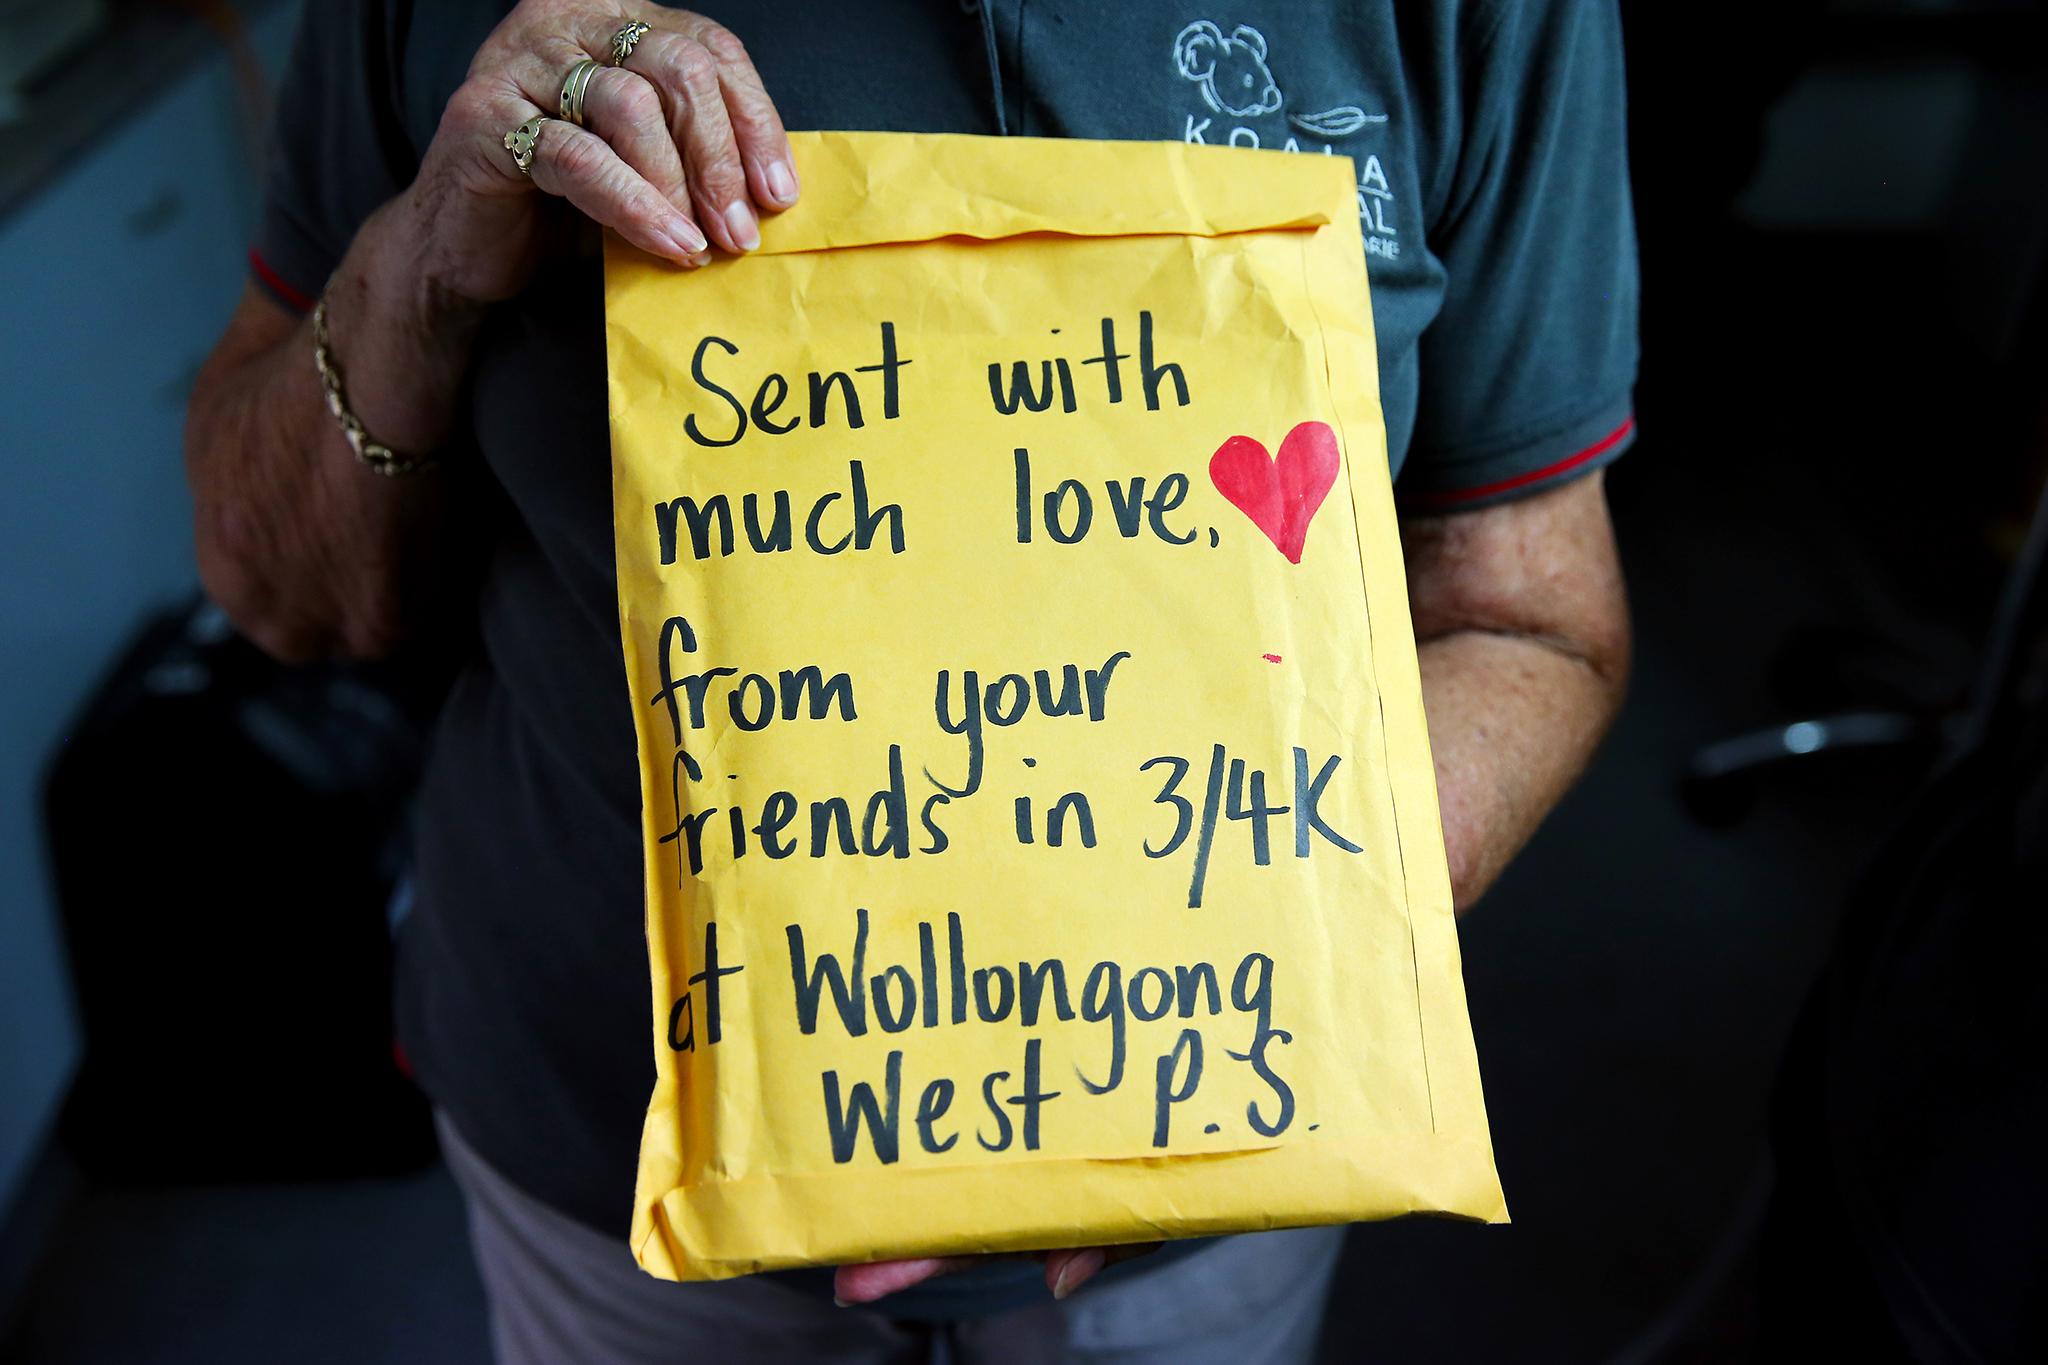 KOALA
Sent with
much love,
from your
friends in 3/4K
at Wollongong
West P.S.